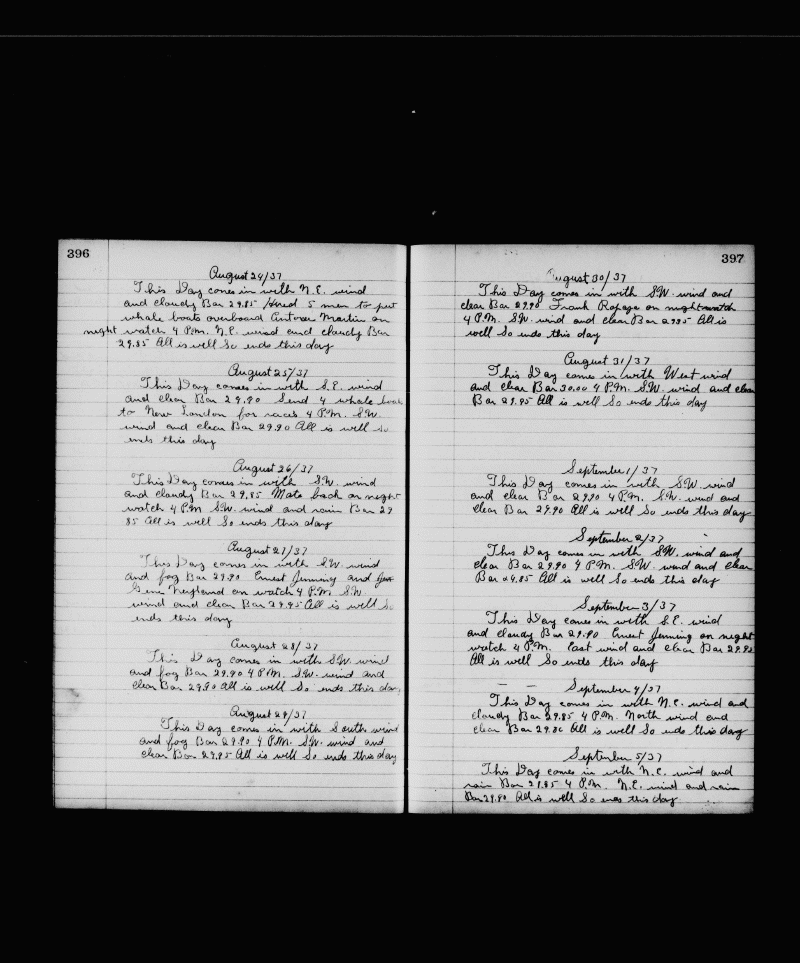 396
August 24/37
This Day comes in with N.E. wind
and cloudy Bar 29.85 Hired 5 men to put
whale boats overboard Antone Martin on
night watch 4 P.M. N.E. wind and cloudy Bar
29.85 All is well So ends this day
August 25/37
This Day comes in with S.E. wind
and clear Bar 29.90 Send 4 whale boats
to New London for races 4 P.M. S.W.
wind and clear Bar 29.90 All is well So
ends this day
August 26/37
This Day comes in with S.W. wind
and cloudy Bar 29.85 Mate back on night
watch 4 P.M S.W. wind and rain Bar 29
85 All is well So ends this day
August 27/37
This Day comes in with S.W. wind
and fog Bar 29.90 Ernest Jenning and
Gene Neyland on watch 4 P.M. S.W.
wind and clear Bar 29.95 All is well So
ends this day
August 28/37
This Day comes in with S.W. wind
and fog Bar 29.90 4 P.M. S.W. wind and
clear Bar 29.90 All is well So ends this day
August 29/37
This Day comes in with South wind
and fog Bar 29.90 4 P.M. S.W. wind and
clear Bar 29.95 All is well So ends this day
397
August 30/37
This Day comes in with S.W. wind and
clear Bar 29.90 Frank Rapoze on night watch
4 P.M. S.W. wind and clear Bar 29.95 All is
well So ends this day
August 31/37
This Day comes in with West wind
and clear Bar 30.00 4 P.M. S.W. wind and clear
Bar 29.95 All is well So ends this day
September 1/37
This Day comes in with S.W. wind
and clear Bar 29.90 4 P.M. S.W. wind and
clear Bar 29.90 All is well So ends this day
September 2/37
This Day comes in with S.W. wind and
clear Bar 29.90 4 P.M. S.W. wind and clear
Bar 29.85 All is well So ends this day
September 3/37
This Day comes in with S.E. wind
and cloudy Bar 29.90 Ernest Jenning on night
watch 4 P.M. East wind and clear Bar 29.95
All is well So ends this day
September 4/37
This Day comes in with N.E. wind and
cloudy Bar 29.85 4 P.M. North wind and
clear Bar 29.80 All is well So ends this day
September 5/37
This Day comes in with N.E. wind and
rain Bar 29.85 4 P.M. N.E. wind and rain
Bar 29.90 All is well So ends this day